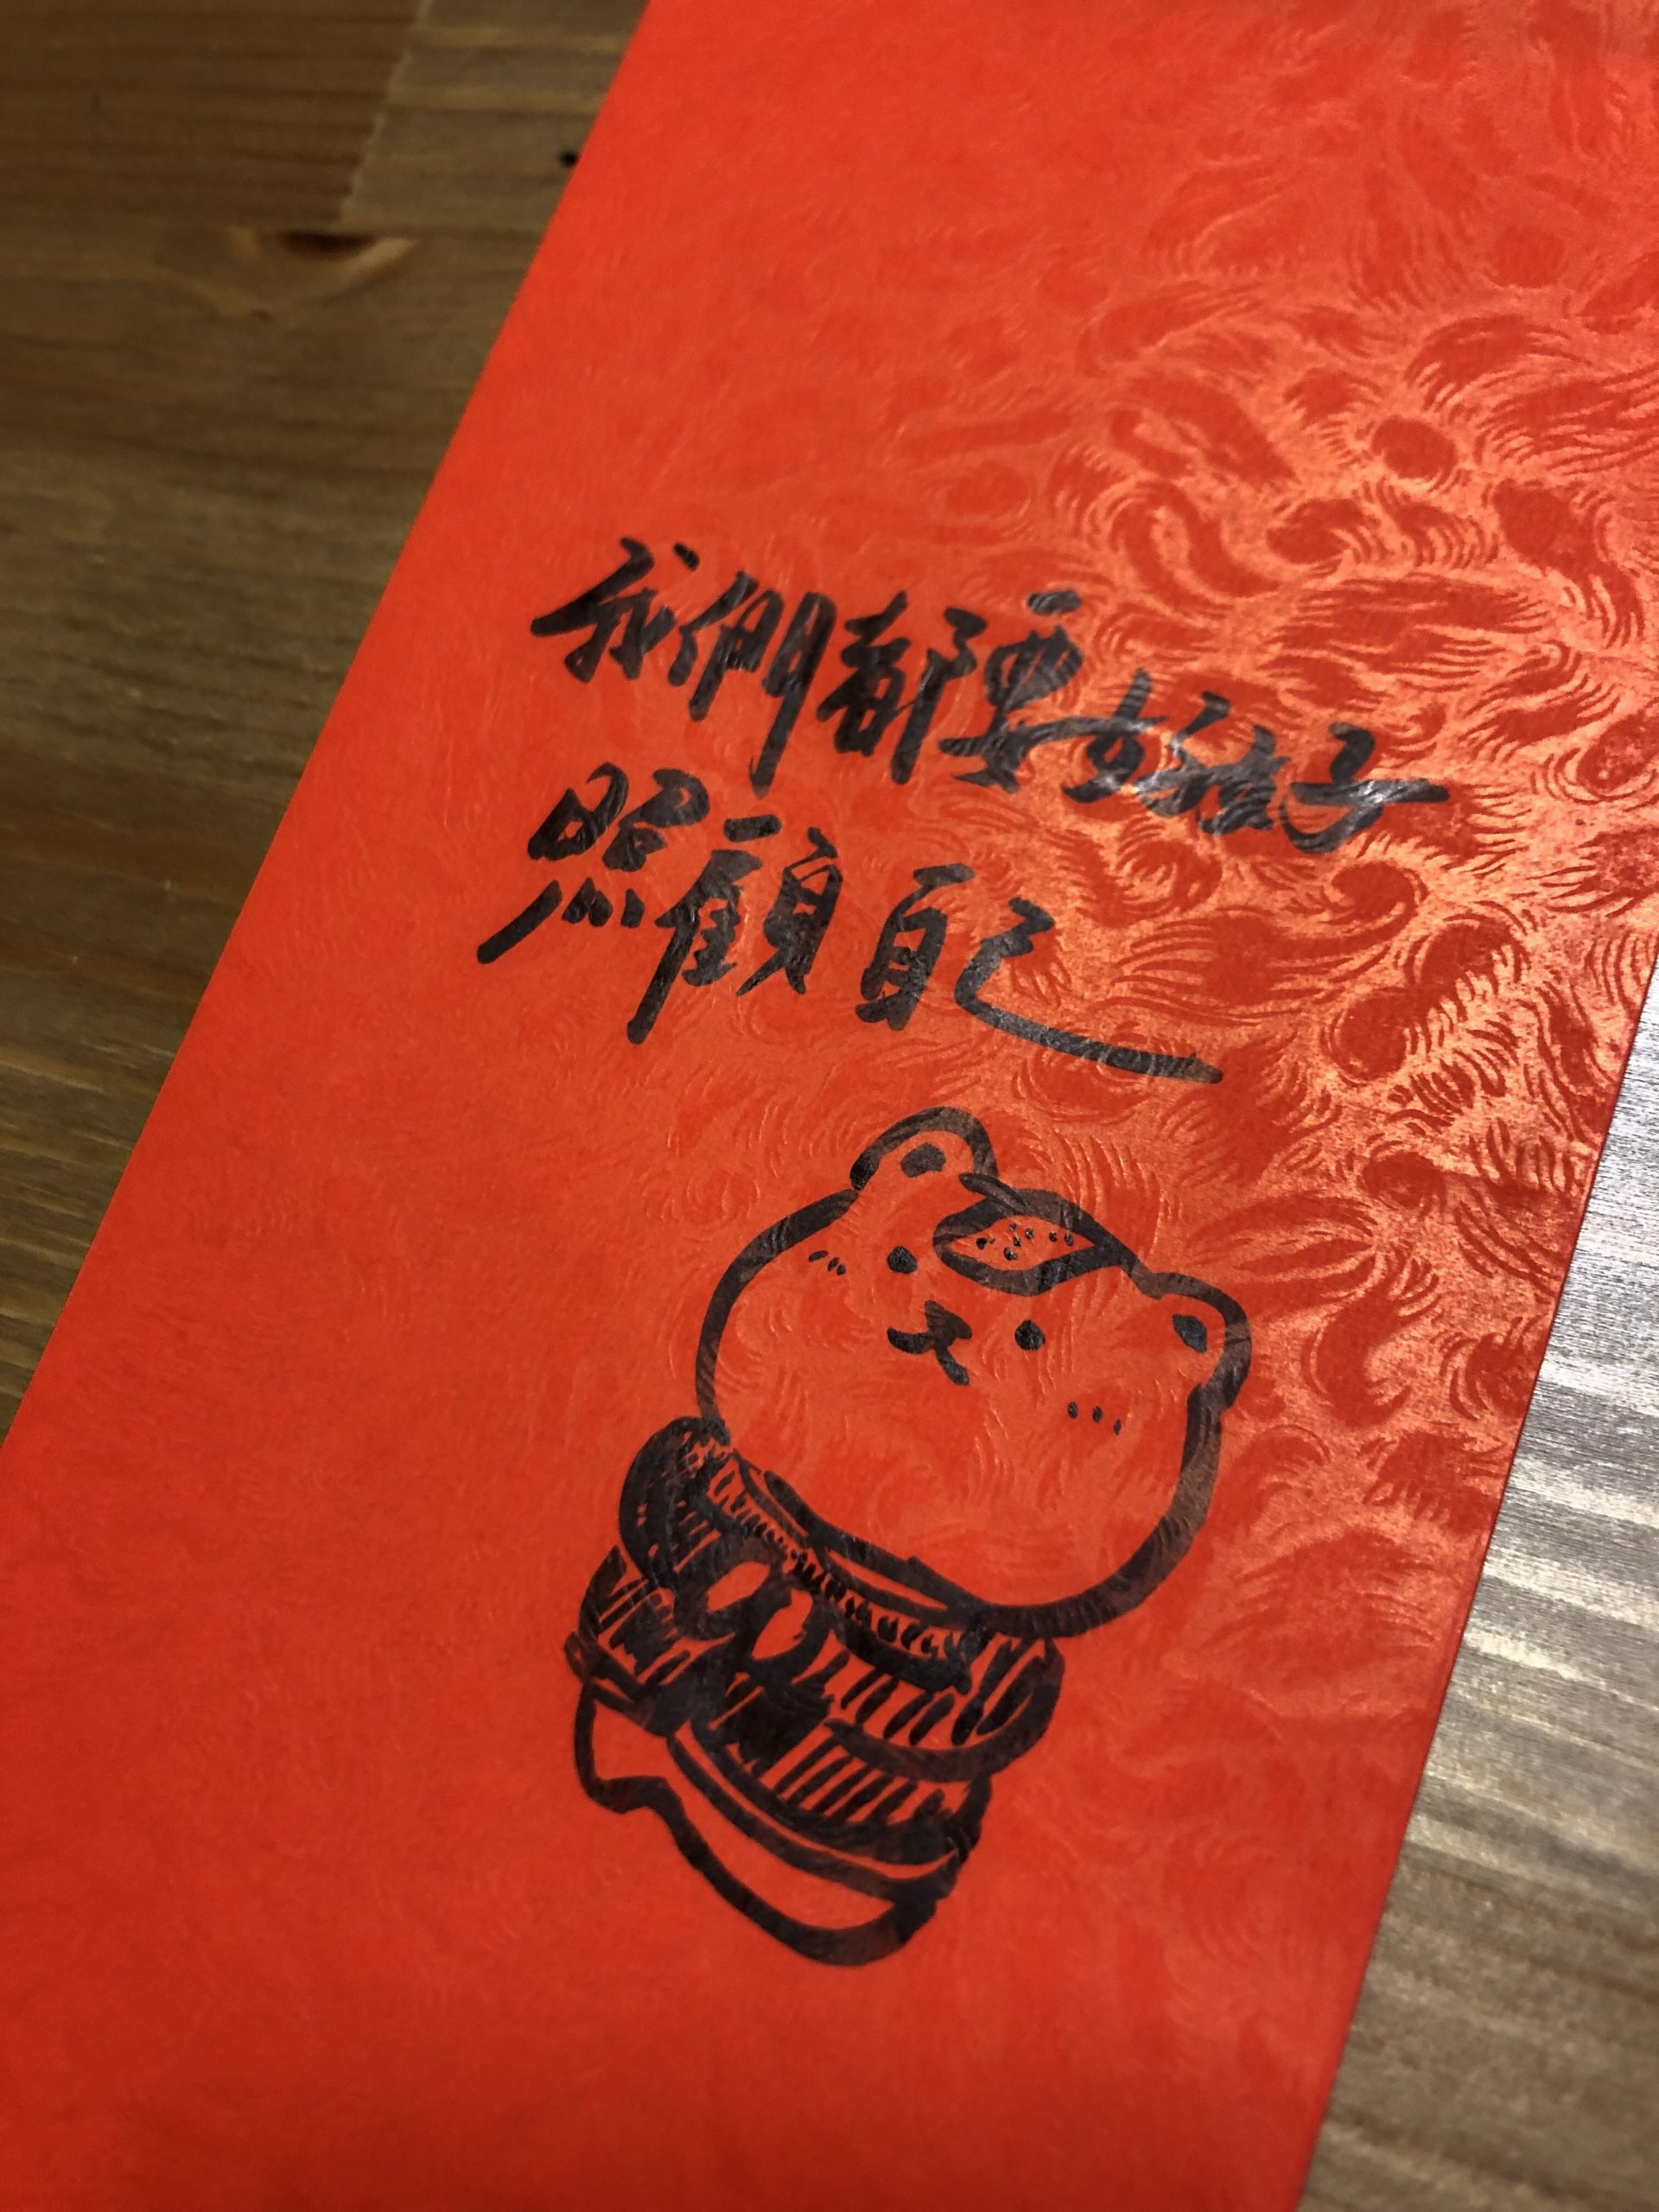 我們都要好好
照顧自己